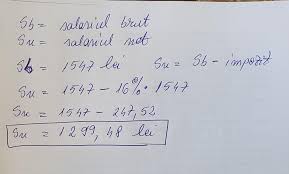 Sb = salariul brut
Sn = salariul net
Sb = 1547 lei Sn = Sb - impozit
Sn = 1547 - 16% · 1547
Sn = 1547 - 247,52
Sn = 1299,48 lei